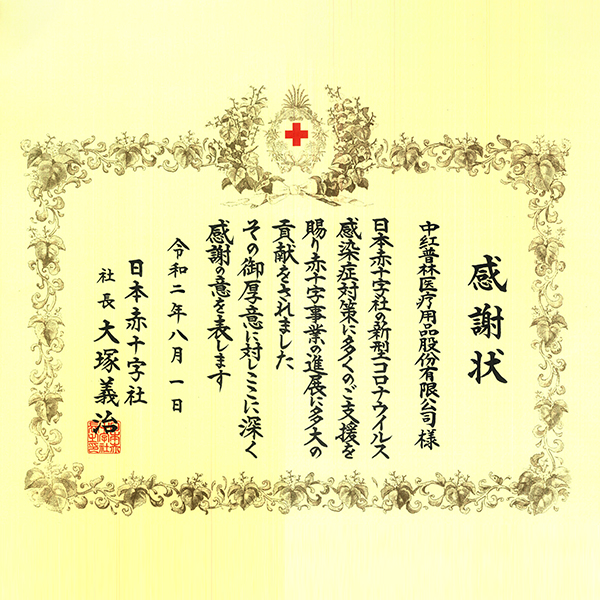 感謝状
中红普林医疗用品股份有限公司 様
日本赤十字社の新型コロナウイルス
感染症対策に多くのご支援を
賜り赤十字事業の進展に多大の
貢献をされました
その御厚意に対しここに深く
感謝の意を表します
令和二年八月一日
日本赤十字社
社長 大塚義治